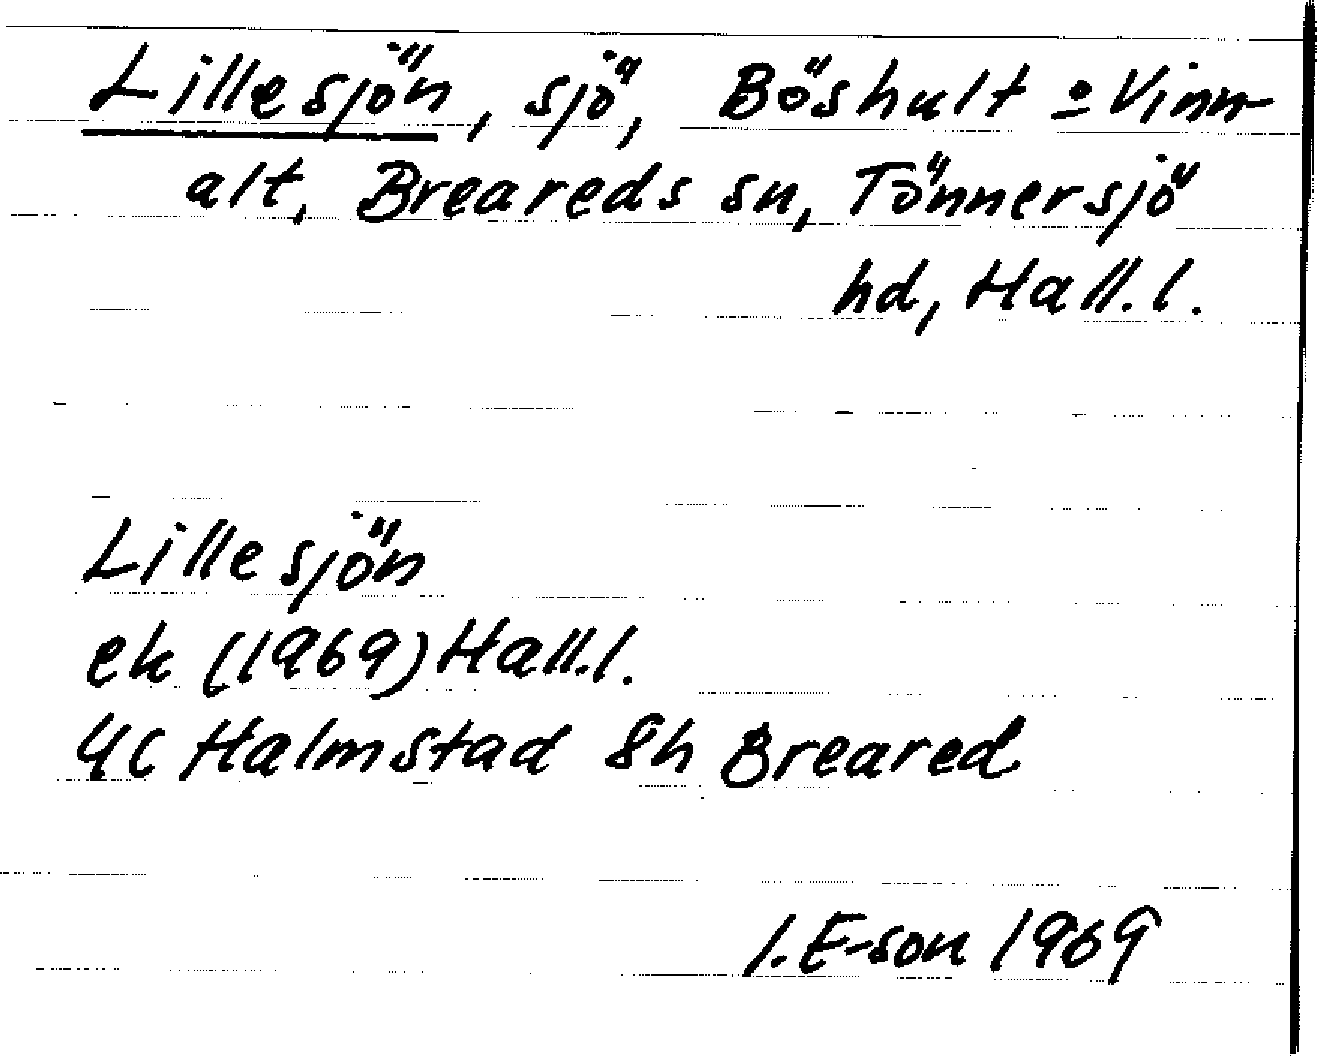 Lillesjön, sjö, Böshult o Vinn-
alt, Breareds sn, Tönnersjö
hd, Hall.l.
Lillesjön
ek (1969) Hall.l.
4C Halmstad 8h Breared
I. E-son 1969